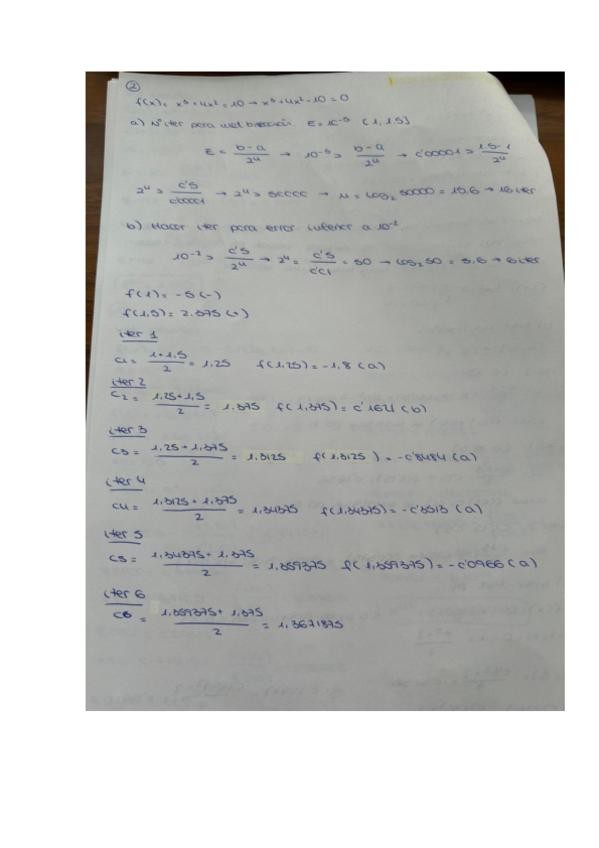 ②
f(x) = x³ + 4x² = 10 → x³ + 4x² - 10 = 0
a) Nº iter para met bisección E = 10⁻⁵ [1, 1.5]
E = b-a / 2ⁿ → 10⁻⁵ > b-a / 2ⁿ → 0'00001 > 1.5-1 / 2ⁿ
2ⁿ > 0'5 / 0'00001 → 2ⁿ > 50000 → n = log₂ 50000 = 15.6 → 16 iter
b) Hacer iter para error inferior a 10⁻².
10⁻² > 0'5 / 2ⁿ → 2ⁿ = 0'5 / 0'01 = 50 → log₂ 50 = 5.6 → 6 iter
f(1) = -5 (-)
f(1,5) = 2.375 (+)
iter 1
C1 = 1+1,5 / 2 = 1,25 f(1,25) = -1,8 (a)
iter 2
C2 = 1,25+1,5 / 2 = 1,375 f(1,375) = 0'1621 (b)
iter 3
C3 = 1,25+1,375 / 2 = 1,3125 f(1,3125) = -0'8484 (a)
iter 4
C4 = 1,3125+1,375 / 2 = 1,34375 f(1,34375) = -0'3513 (a)
iter 5
C5 = 1,34375+1,375 / 2 = 1,359375 f(1,359375) = -0'0966 (a)
iter 6
C6 = 1,359375+1,375 / 2 = 1,3671875